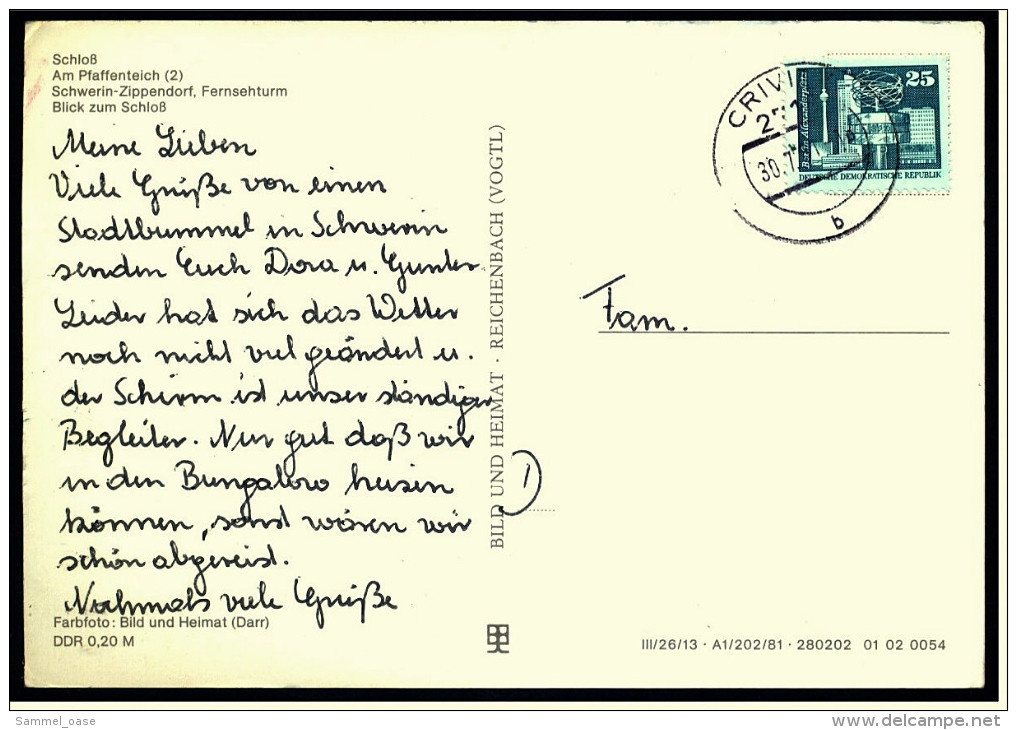 Schloß
Am Pfaffenteich (2)
Schwerin-Zippendorf, Fernsehturm
Blick zum Schloß
Meine Lieben
Viele Grüße von einen
Stadtbummel in Schwerin
senden Euch Dora u. Gunter
Leider hat sich das Wetter
noch nicht viel geändert u.
der Schirm ist unser ständiger
Begleiter. Nur gut daß wir
in den Bungalow heizen
können, sonst wären wir
schon abgereist.
Nochmals viele Grüße
Farbfoto: Bild und Heimat (Darr)
DDR 0,20 M
BILD UND HEIMAT · REICHENBACH (VOGTL)
1
CRIVI
30.7
b
25
Berlin Alexanderplatz
DEUTSCHE DEMOKRATISCHE REPUBLIK
Fam.
III/26/13 · A1/202/81 · 280202 01 02 0054
Sammel_oase
www.delcampe.net